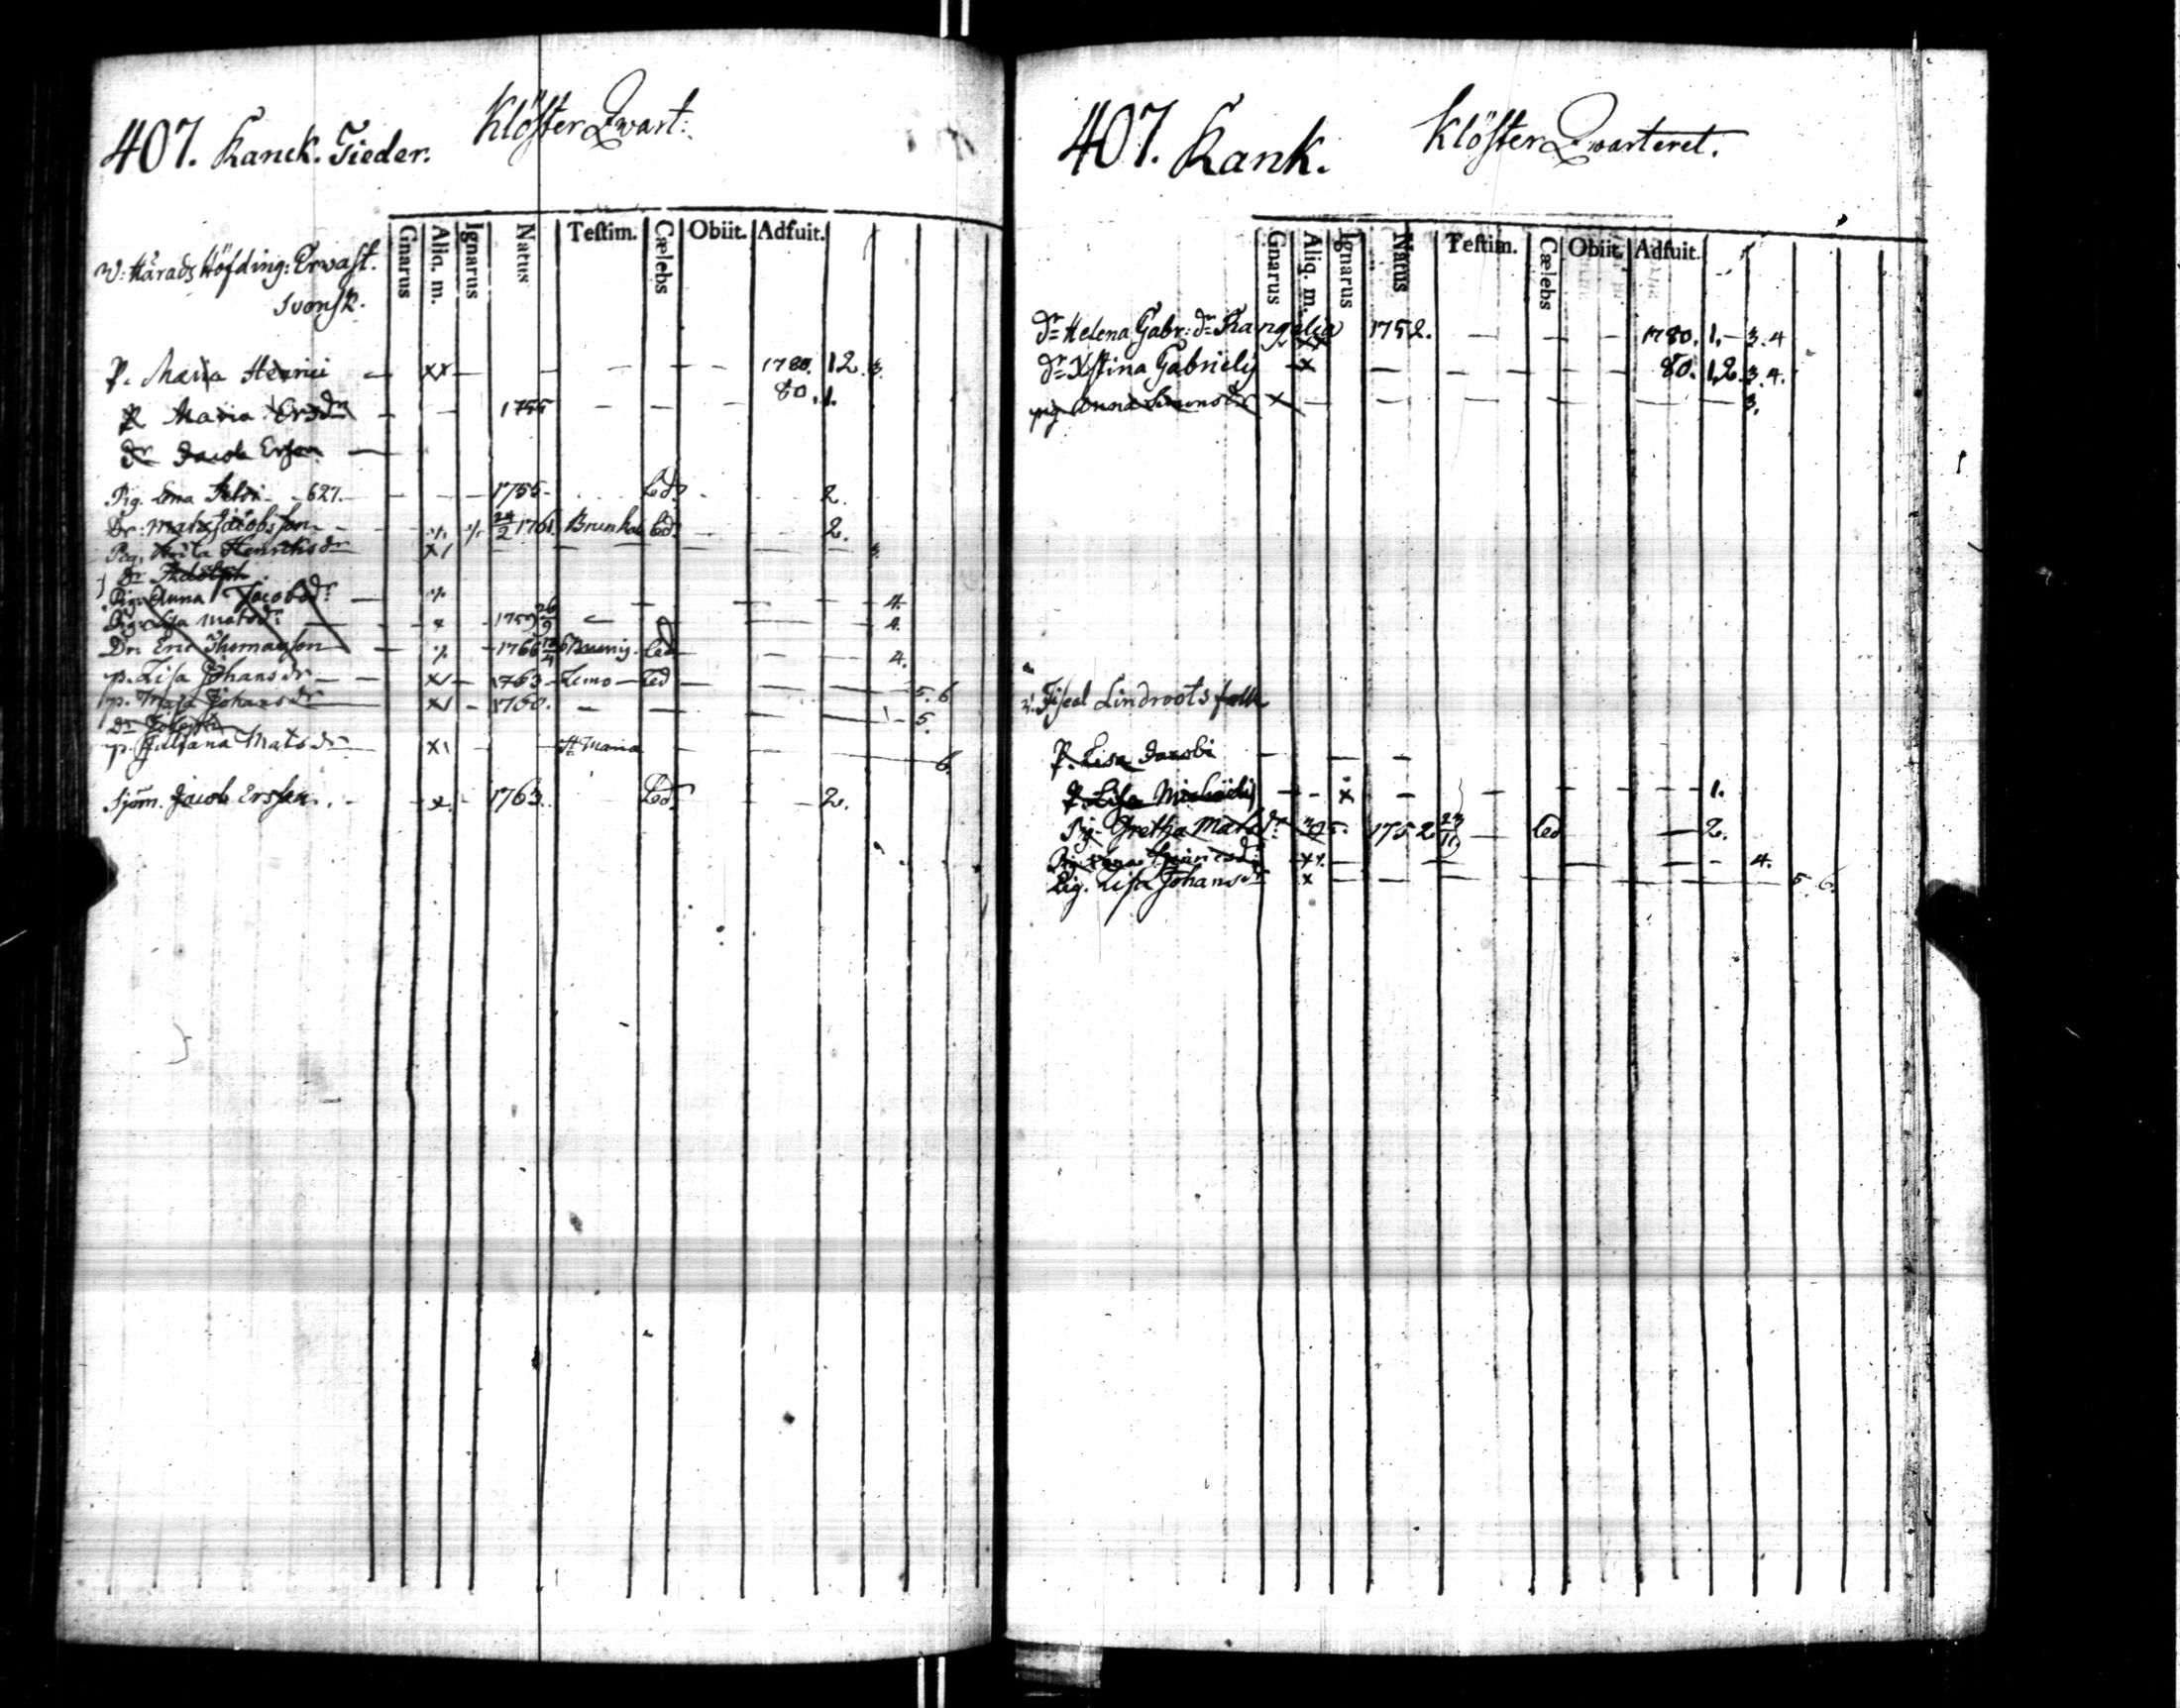 407. Kanck. Tieder. Klöster Qwart:
Gnarus Aliq. m. Ignarus Natus Testim. Cælebs Obiit. Adfuit.
v: Härads Höfding: Erwast.
svensk.
P. Maria Henrici - xx - - - - - 1780. 12. 3.
P Maria Ersdr - - 1755 - - - 80. 1.
Dr Jacob Ersson -
Pig. Lena - 627. - - - 1755 - Led. - - 2.
Dr: Mats Jacobsson - 24/2 1761. Led. - - 2.
Pig. Henricsdr x1 - - - - - - 3.
Dr Adolph
Pig: Anna Jacobsdr - - - - 4.
Pig: Lisa Matsdr - x - 1759 26/9 - - - 4.
Dr: Eric Thomasson - - 1766 Led - - - 4.
p. Lisa Johansdr - - x1 - 1763 - Lemo - Led - - - 5. 6
p. Maja Johansdr x1 - 1760. - - - - 5.
Dr
p. Juliana Matsdr x1 - - St Maria - - 6.
Sjöm. Jacob Ersson. - x. - 1763. Led. - - 2.
407. Kank. Klöster Qwarteret.
Gnarus Aliq. m. Ignarus Natus Testim. Cælebs Obiit. Adfuit.
Dr Helena Gabr: dr xx 1752. - - - 1780. 1. - 3. 4
dr Xstina Gabrielis - x - - - - - 80. 1. 2. 3. 4.
pig Anna Simonsdr x - - - - - - - 3.
v. Fiscal Lindroots folk
P. Lisa Jacobi - - -
P. Lisa Michaëlis - - x - - - - - 1.
Pig. Gretha Matsdr 1752 23/11 - Led - 2.
Pig: - - - - - 4.
Pig. Lisa Johansdr x - - - - - - 5. 6.